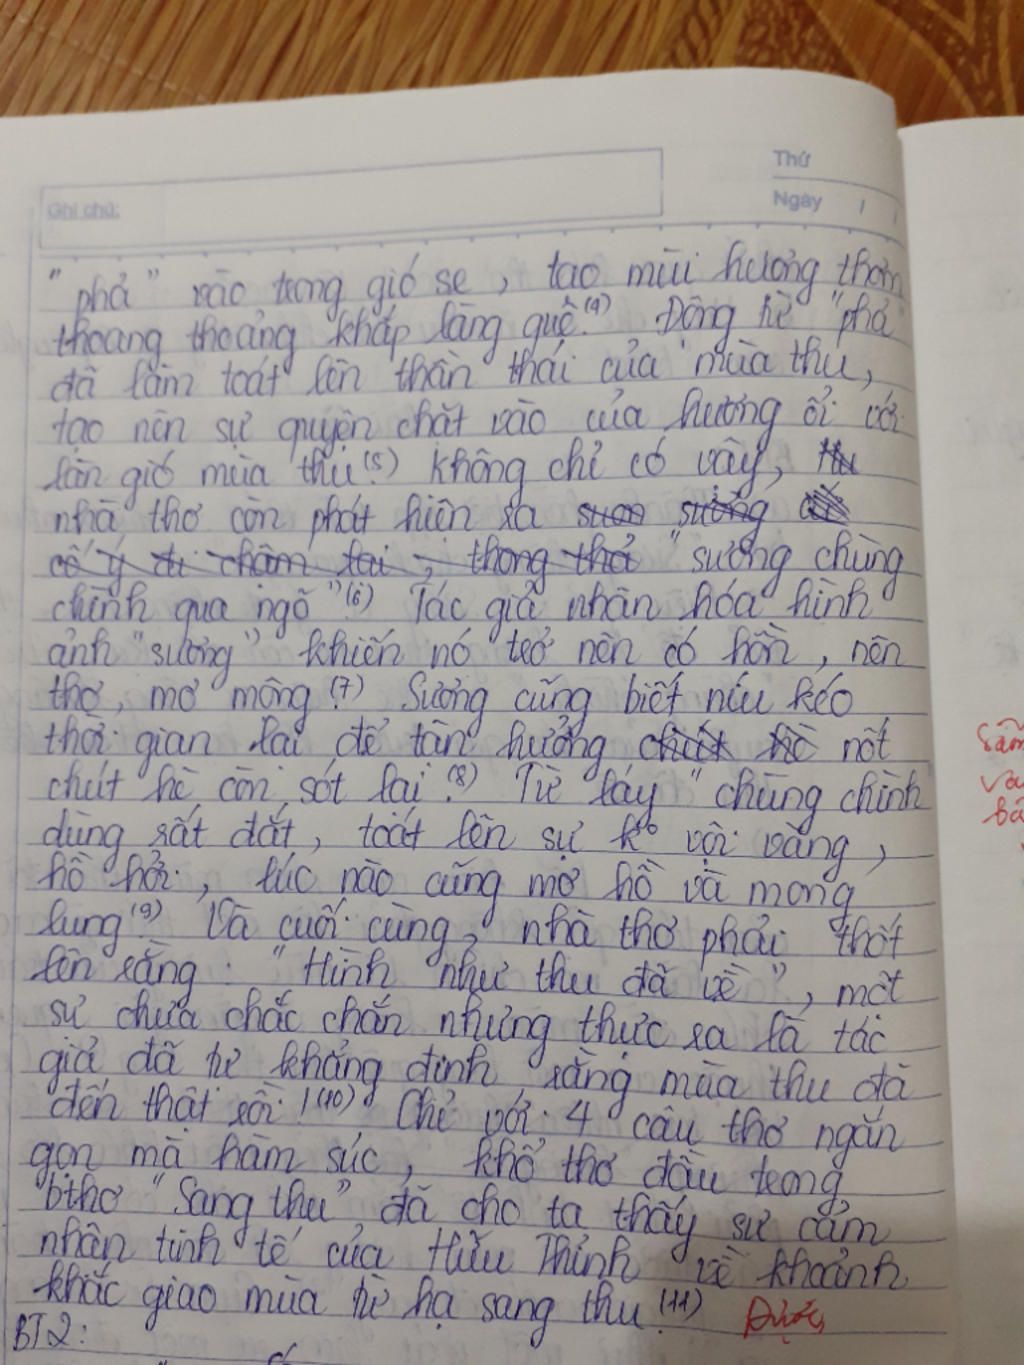 Thứ
Ghi chú:
Ngày / /
"phả" vào trong gió se, tạo mùi hương thơm
thoang thoảng khắp làng quê.(4) Động từ "phả"
đã làm toát lên thần thái của mùa thu,
tạo nên sự quyện chặt vào của hương ổi với
làn gió mùa thu.(5) Không chỉ có vậy,
nhà thơ còn phát hiện ra sươn sương
cố ý đi chậm lại, thong thả "sương chùng
chình qua ngõ".(6) Tác giả nhân hóa hình
ảnh "sương" khiến nó trở nên có hồn, nên
thơ, mơ mộng.(7) Sương cũng biết níu kéo
thời gian lại để tận hưởng chút hè nốt
chút hè còn sót lại.(8) Từ láy "chùng chình
dùng rất đắt, toát lên sự ko vội vàng,
hồ hởi, lúc nào cũng mơ hồ và mong
lung.(9) Và cuối cùng, nhà thơ phải thốt
lên rằng: "Hình như thu đã về", một
sự chưa chắc chắn nhưng thực ra là tác
giả đã tự khẳng định rằng mùa thu đã
đến thật rồi!(10) Chỉ với 4 câu thơ ngắn
gọn mà hàm súc, khổ thơ đầu trong
bthơ "Sang thu" đã cho ta thấy sự cảm
nhận tinh tế của Hữu Thỉnh về khoảnh
khắc giao mùa từ hạ sang thu.(11) Được
BT2: